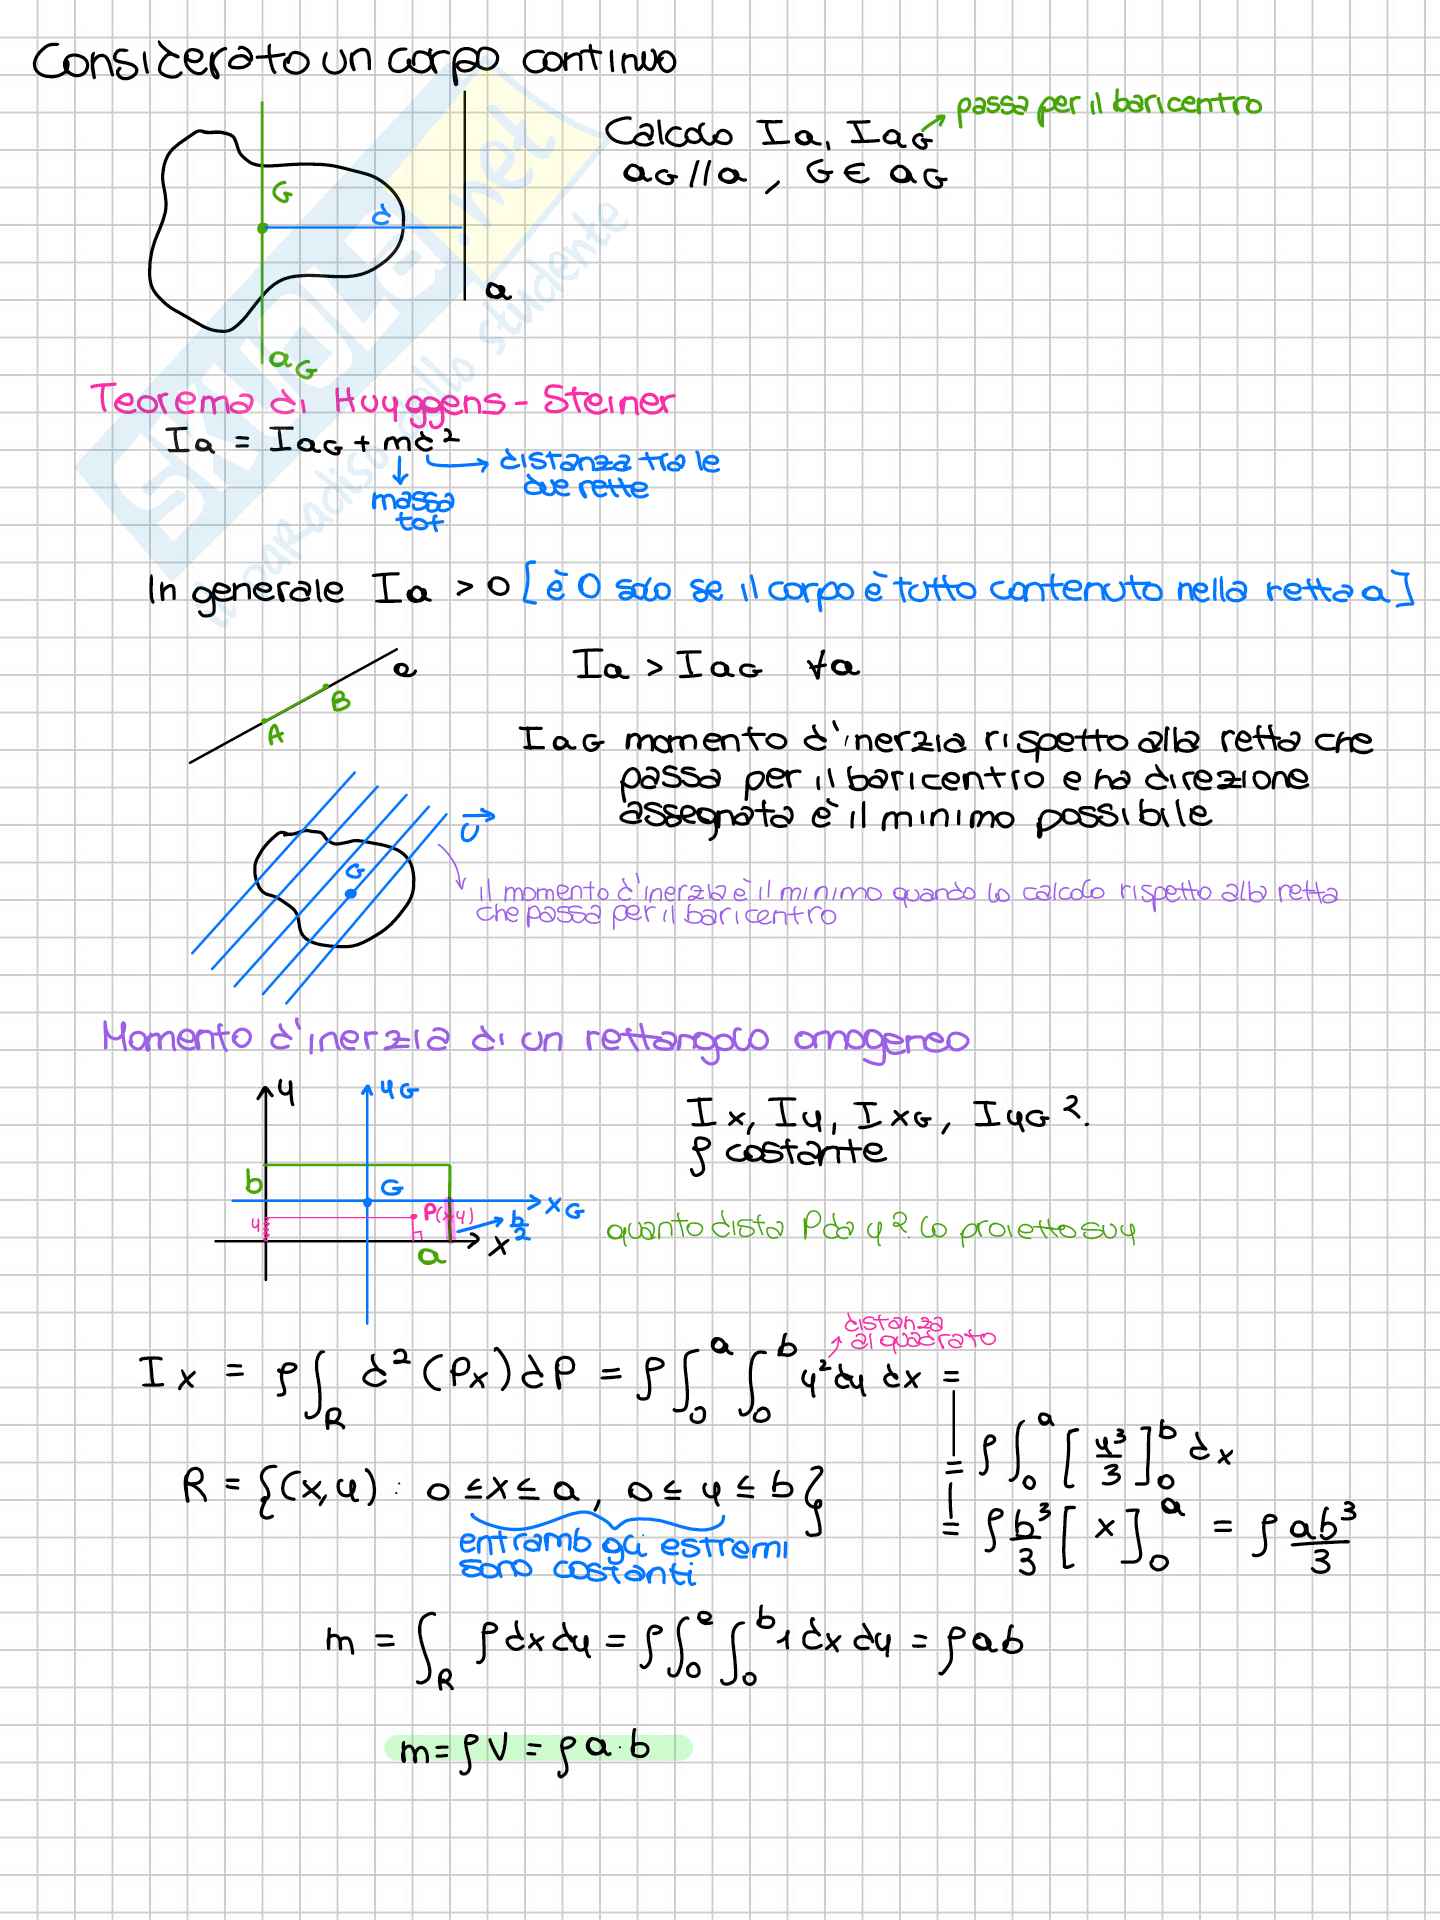 Considerato un corpo continuo
passa per il baricentro
Calcolo Ia, IaG
aG // a , G ∈ aG
G
d
a
aG
SKUOLA.net
il paradiso dello studente
Teorema di Huyggens - Steiner
Ia = IaG + md²
distanza tra le
due rette
massa
tot
In generale Ia > 0 [è 0 solo se il corpo è tutto contenuto nella retta a]
a
A
B
Ia > IaG ∀a
IaG momento d'inerzia rispetto alla retta che
passa per il baricentro e ha direzione
assegnata è il minimo possibile
U
G
il momento d'inerzia è il minimo quando lo calcolo rispetto alla retta
che passa per il baricentro
Momento d'inerzia di un rettangolo omogeneo
y
yG
Ix, Iy, IxG, IyG ?.
ρ costante
b
G
xG
y
P(x,y)
b/2
x
a
quanto dista P da y? lo proietto su y
distanza
al quadrato
Ix = ρ ∫_R d²(Px) dP = ρ ∫_0^a ∫_0^b y² dy dx =
= ρ ∫_0^a [y³/3]_0^b dx
R = {(x,y) : 0 ≤ x ≤ a, 0 ≤ y ≤ b}
= ρ b³/3 [x]_0^a = ρ ab³/3
entramb gli estremi
sono costanti
m = ∫_R ρ dx dy = ρ ∫_0^a ∫_0^b 1 dx dy = ρ ab
m = ρ V = ρ a · b